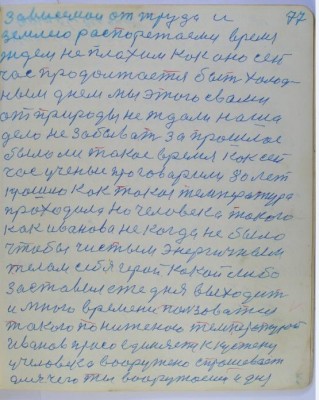 77
зависемои от труда и
землею распорежаемси время
ждем не плохим как оно сей
час продолжается быт холод
ным днем мы этого с вами
от природы не ждали наша
дело не забыват за прошлое
было ли такое время как сей
час ученые проговарили 30 лет
прошло как такая температура
проходила но человека такого
как иванова не когда не было
чтобы чистым энергичным
телом себя герой какой либо
заставил сте дня выходит
и много времени ползоватся
такою по ниженою температурой
иванов просо единяет к
человека вооружено спрашивает
для чего ты вооружоный идеш